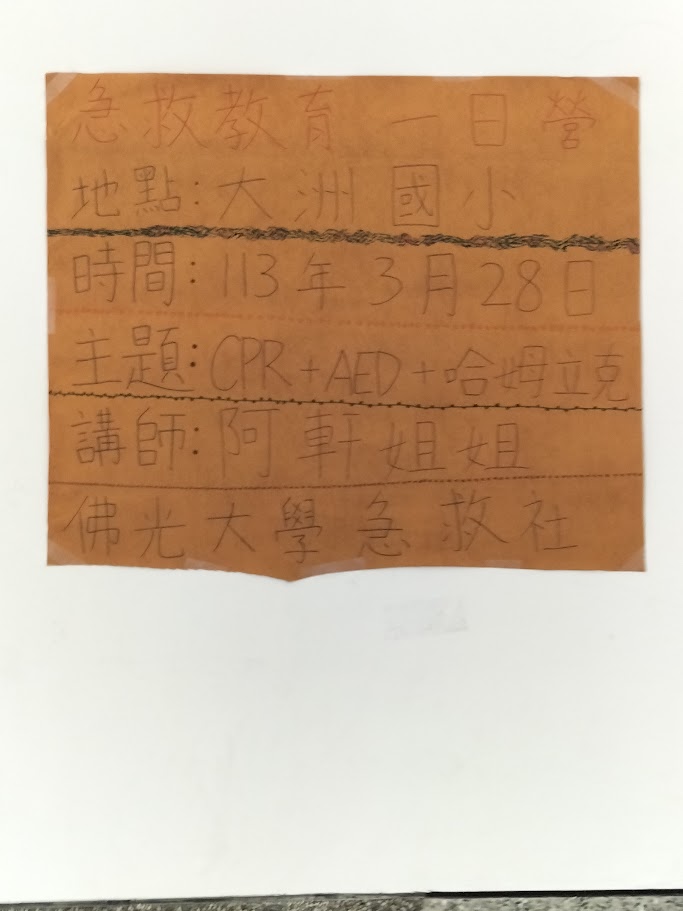 急救教育一日營
地點:大洲國小
時間:113年3月28日
主題:CPR+AED+哈姆立克
講師:阿軒姐姐
佛光大學急救社